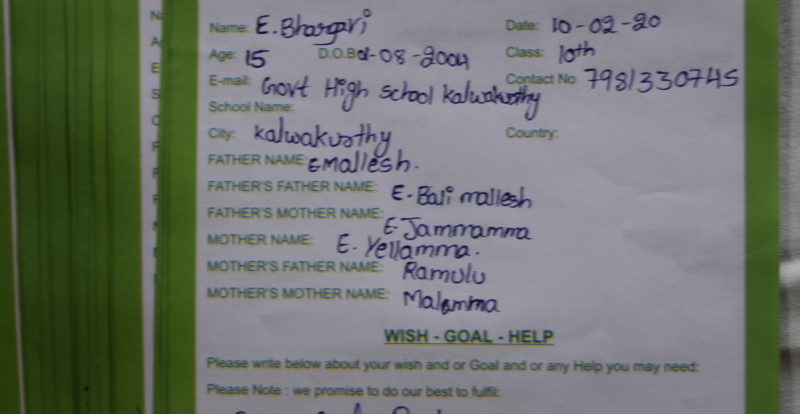 Name: E. Bhargavi Date: 10-02-20
Age: 15 D.O.B 01-08-2004 Class: 10th
E-mail: Govt High school kalwakurthy Contact No 7981330745
School Name:
City: kalwakurthy Country:
FATHER NAME: E Mallesh.
FATHER'S FATHER NAME: E. Bali mallesh
FATHER'S MOTHER NAME: E Jammamma
MOTHER NAME: E. Yellamma.
MOTHER'S FATHER NAME: Ramulu
MOTHER'S MOTHER NAME: Malamma
WISH - GOAL - HELP
Please write below about your wish and or Goal and or any Help you may need:
Please Note : we promise to do our best to fulfil: